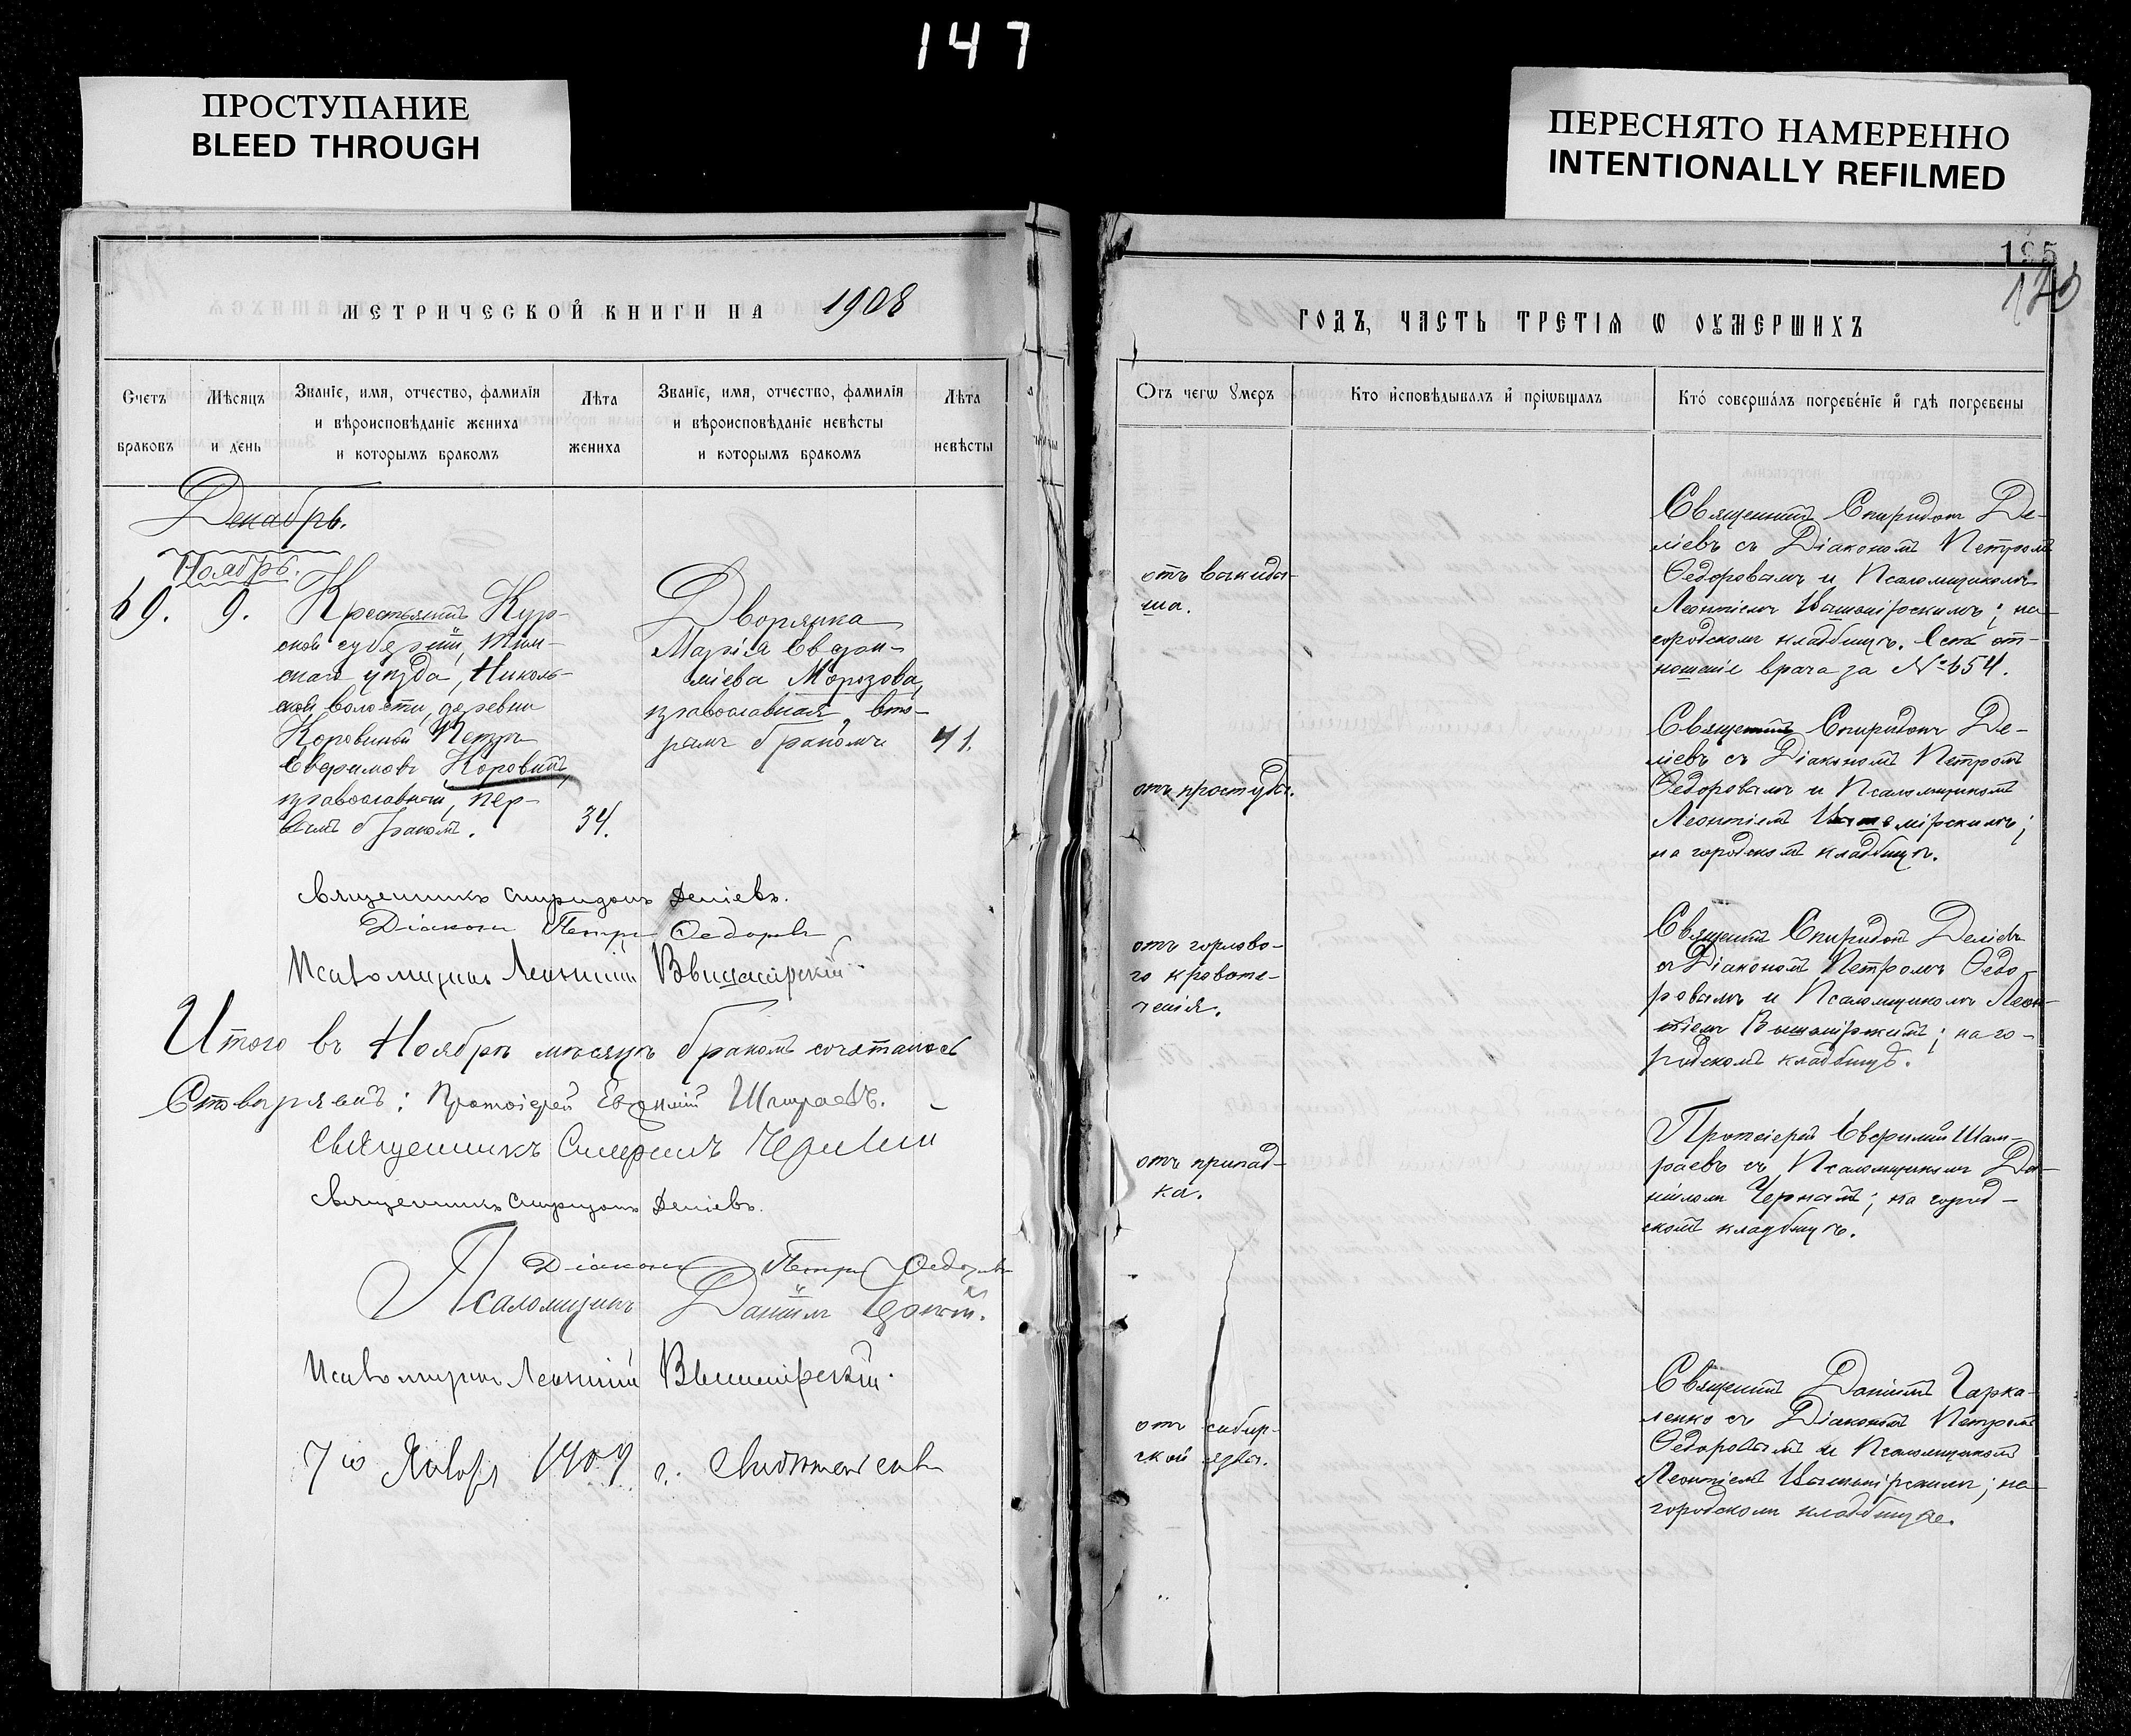 147
ПРОСТУПАНИЕ
BLEED THROUGH
ПЕРЕСНЯТО НАМЕРЕННО
INTENTIONALLY REFILMED
МЕТРИЧЕСКОЙ КНИГИ НА 1908
Счетъ браковъ
Мѣсяцъ и день
Званіе, имя, отчество, фамилія и вѣроисповѣданіе жениха и которымъ бракомъ
Лѣта жениха
Званіе, имя, отчество, фамилія и вѣроисповѣданіе невѣсты и которымъ бракомъ
Лѣта невѣсты
Декабрь.
Ноябрь.
69. 9.
Крестьянинъ Кур-
ской губерніи, Тим-
скаго уѣзда, Николь-
ской волости, деревни
Коровиной Петръ
Евѳимовъ Коровинъ,
православный, пер-
вымъ бракомъ.
34.
Дворянка
Марія Евѳи-
міева Морозова,
православная, вто-
рымъ бракомъ
41.
Священникъ Спиридонъ Деліевъ.
Діаконъ Петръ Ѳедоровъ
Псаломщикъ Леонтій
Итого въ Ноябрѣ мѣсяцѣ бракомъ сочеталось
Протоіерей Евѳимій Шамраевъ.
Священникъ
Священникъ Спиридонъ Деліевъ.
Діаконъ Петръ Ѳедоровъ
Псаломщикъ Даніилъ
Псаломщикъ Леонтій
1909 г.
195
ГОДЪ, ЧАСТЬ ТРЕТІѦ Ѡ ОУМЕРШИХЪ
Отъ чегѡ ѹмеръ
Кто исповѣдывалъ и пріѡбщалъ
Кто совершалъ погребеніе и гдѣ погребены
отъ выкиды-
ша.
Священникъ Спиридонъ Де-
ліевъ съ Діакономъ Петромъ
Ѳедоровымъ и Псаломщикомъ
Леонтіемъ на
городскомъ кладбищѣ. Есть от-
ношеніе врача за № 654.
отъ простуды.
Священникъ Спиридонъ Де-
ліевъ съ Діакономъ Петромъ
Ѳедоровымъ и Псаломщикомъ
Леонтіемъ
на городскомъ кладбищѣ.
отъ горлово-
го кровоте-
ченія.
Священникъ Спиридонъ Деліевъ
съ Діакономъ Петромъ Ѳедо-
ровымъ и Псаломщикомъ Леон-
тіемъ на го-
родскомъ кладбищѣ.
отъ припад-
ка.
Протоіерей Евѳимій Шам-
раевъ съ Псаломщикомъ Да-
ніиломъ Чернымъ; на город-
скомъ кладбищѣ.
отъ сибир-
ской язвы.
Священникъ Даніилъ Гарка-
ленко съ Діакономъ Петромъ
Ѳедоровымъ и Псаломщикомъ
Леонтіемъ на
городскомъ кладбищѣ.